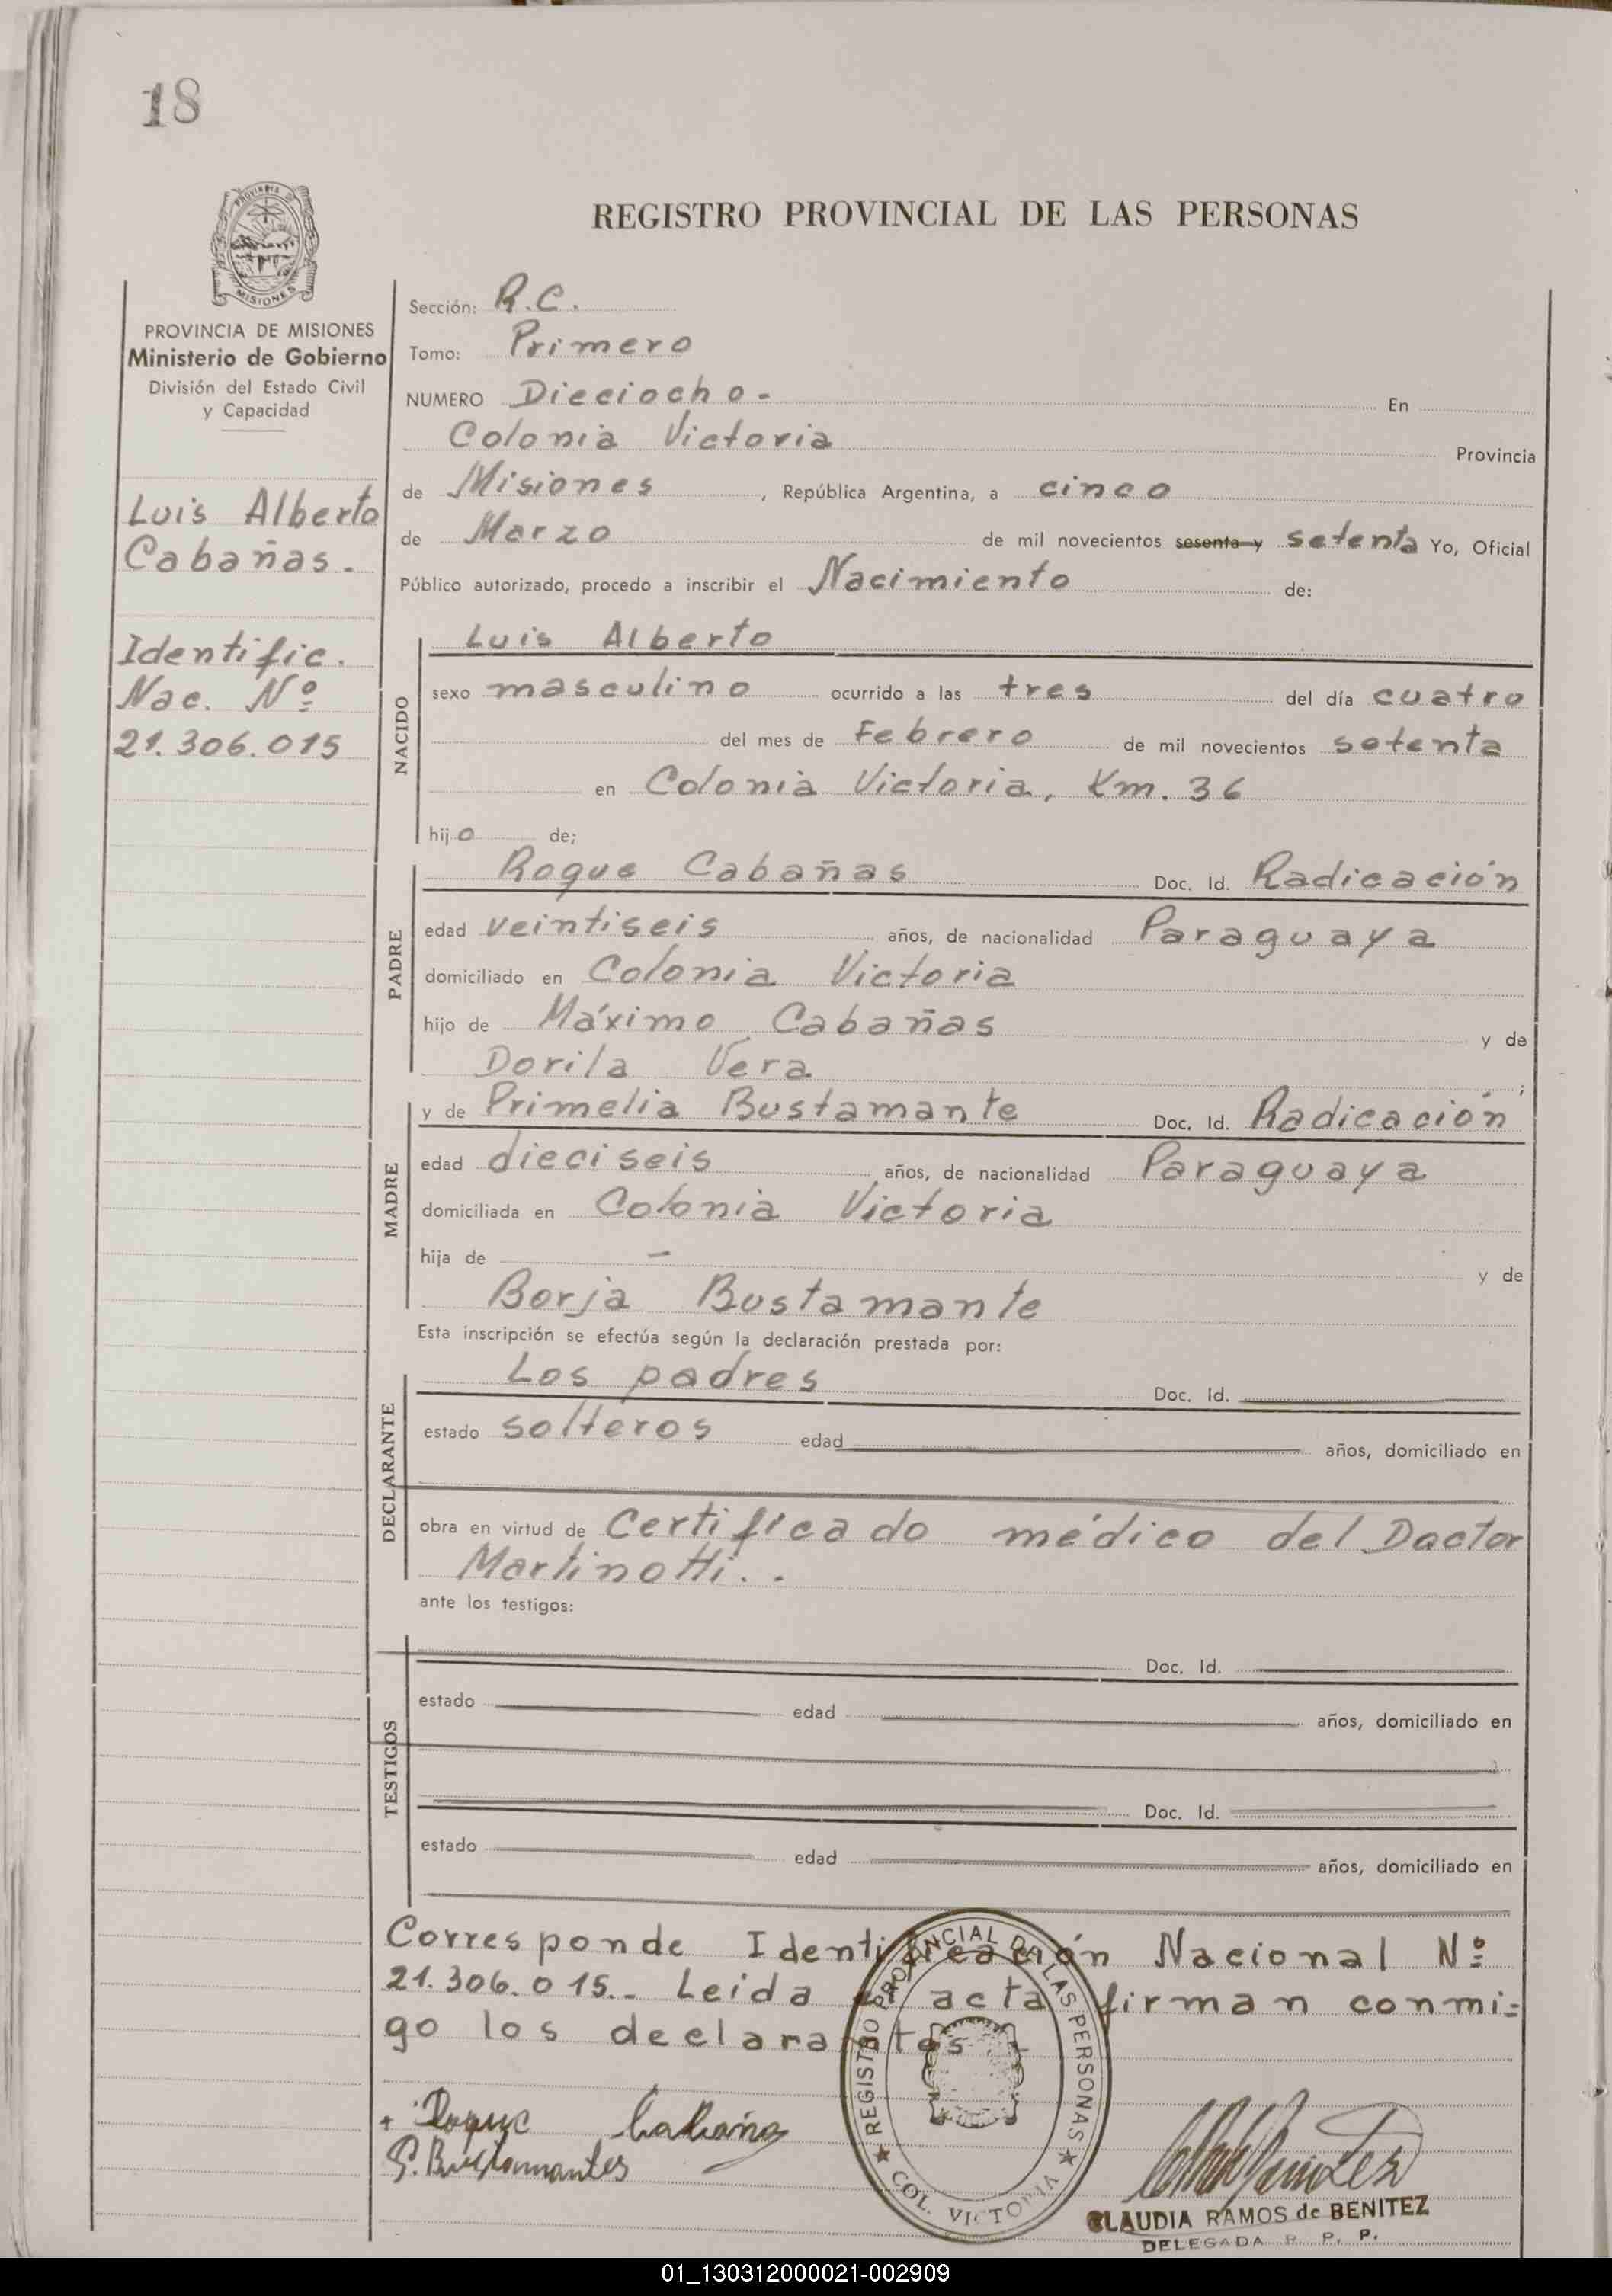 18
REGISTRO PROVINCIAL DE LAS PERSONAS
PROVINCIA DE MISIONES
Ministerio de Gobierno
División del Estado Civil
y Capacidad
Luis Alberto
Cabañas.
Identific.
Nac. Nº
21.306.015
Sección: R.C.
Tomo: Primero
NUMERO Dieciocho.- En
Colonia Victoria Provincia
de Misiones, República Argentina, a cinco
de Marzo de mil novecientos sesenta y setenta Yo, Oficial
Público autorizado, procedo a inscribir el Nacimiento de:
NACIDO
Luis Alberto
sexo masculino ocurrido a las tres del día cuatro
del mes de Febrero de mil novecientos setenta
en Colonia Victoria, Km. 36
hijo de;
PADRE
Roque Cabañas Doc. Id. Radicación
edad veintiseis años, de nacionalidad Paraguaya
domiciliado en Colonia Victoria
hijo de Máximo Cabañas y de
Dorila Vera ;
MADRE
y de Primelia Bustamante Doc. Id. Radicación
edad dieciseis años, de nacionalidad Paraguaya
domiciliada en Colonia Victoria
hija de - y de
Borja Bustamante
Esta inscripción se efectúa según la declaración prestada por:
DECLARANTE
Los padres Doc. Id.
estado solteros edad años, domiciliado en
obra en virtud de Certificado médico del Doctor
Martinotti..
ante los testigos:
TESTIGOS
Doc. Id.
estado edad años, domiciliado en
Doc. Id.
estado edad años, domiciliado en
Corresponde Identificación Nacional Nº
21.306.015.- Leida el acta firman conmi=
go los declarantes.-
REGISTRO PROVINCIAL DE LAS PERSONAS
COL. VICTORIA
+ Roque Cabañas
P. Bustamantes
CLAUDIA RAMOS de BENITEZ
DELEGADA R. P. P.
01_130312000021-002909